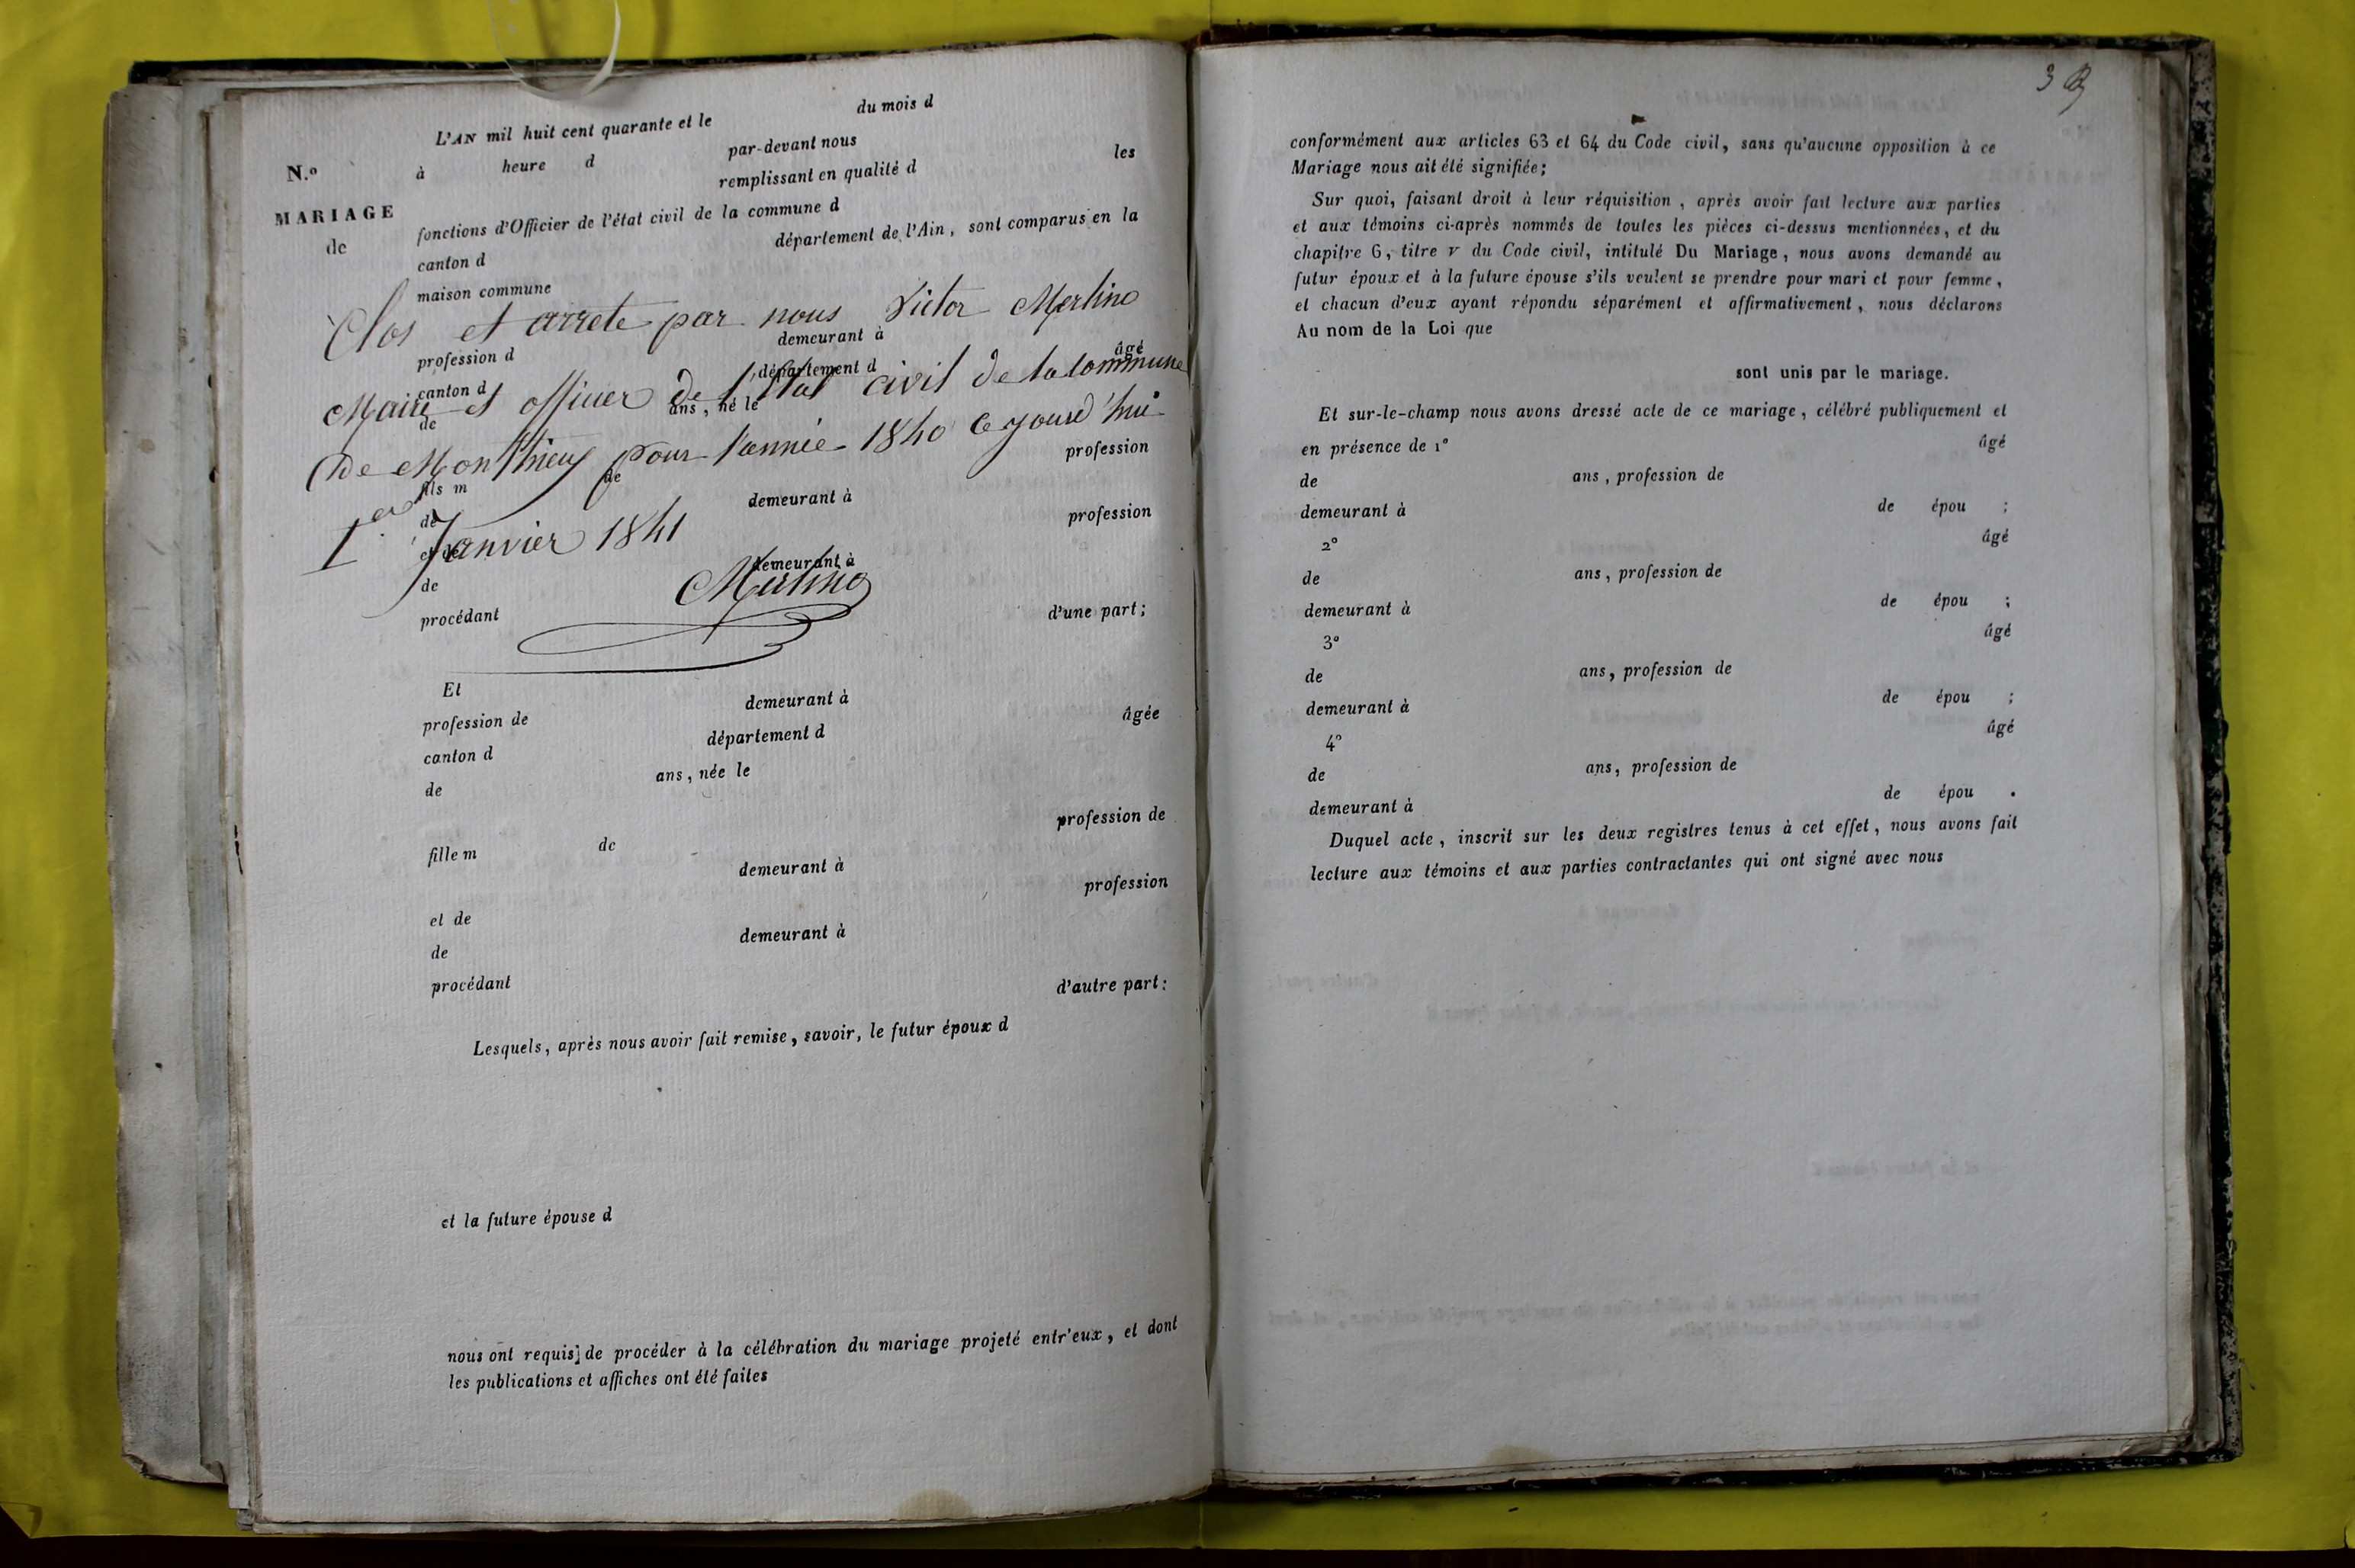 L'AN mil huit cent quarante et le du mois d
N.º à heure d par-devant nous
remplissant en qualité d les
MARIAGE
de
fonctions d'Officier de l'état civil de la commune d
canton d département de l'Ain, sont comparus en la
maison commune
Clos et arrete par nous Victor Merlino
profession d demeurant à
canton d département d âgé
Maire et officier de l'Etat civil de la commune
de ans, né le
de Monthieux pour l'année 1840 Cejourd'hui
profession
fils m de
de demeurant à
1er Janvier 1841
et de profession
de demeurant à
Merlino
procédant d'une part;
Et
profession de demeurant à
canton d département d âgée
de ans, née le
profession de
fille m de
demeurant à
et de profession
de demeurant à
procédant d'autre part:
Lesquels, après nous avoir fait remise, savoir, le futur époux d
et la future épouse d
nous ont requis de procéder à la célébration du mariage projeté entr'eux, et dont
les publications et affiches ont été faites
conformément aux articles 63 et 64 du Code civil, sans qu'aucune opposition à ce
Mariage nous ait été signifiée;
Sur quoi, faisant droit à leur réquisition, après avoir fait lecture aux parties
et aux témoins ci-après nommés de toutes les pièces ci-dessus mentionnées, et du
chapitre 6, titre V du Code civil, intitulé Du Mariage, nous avons demandé au
futur époux et à la future épouse s'ils veulent se prendre pour mari et pour femme,
et chacun d'eux ayant répondu séparément et affirmativement, nous déclarons
Au nom de la Loi que
sont unis par le mariage.
Et sur-le-champ nous avons dressé acte de ce mariage, célébré publiquement et
en présence de 1º âgé
de ans, profession de
demeurant à de épou ;
2º âgé
de ans, profession de
demeurant à de épou ;
3º âgé
de ans, profession de
demeurant à de épou ;
4º âgé
de ans, profession de
demeurant à de épou .
Duquel acte, inscrit sur les deux registres tenus à cet effet, nous avons fait
lecture aux témoins et aux parties contractantes qui ont signé avec nous